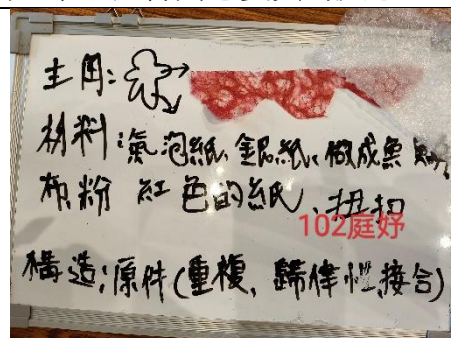 主角:
材料:氣泡紙、銀紙、做成魚
布粉 紅色的紙、扭扣
102庭妤
構造:原件(重複、歸律性,接合)